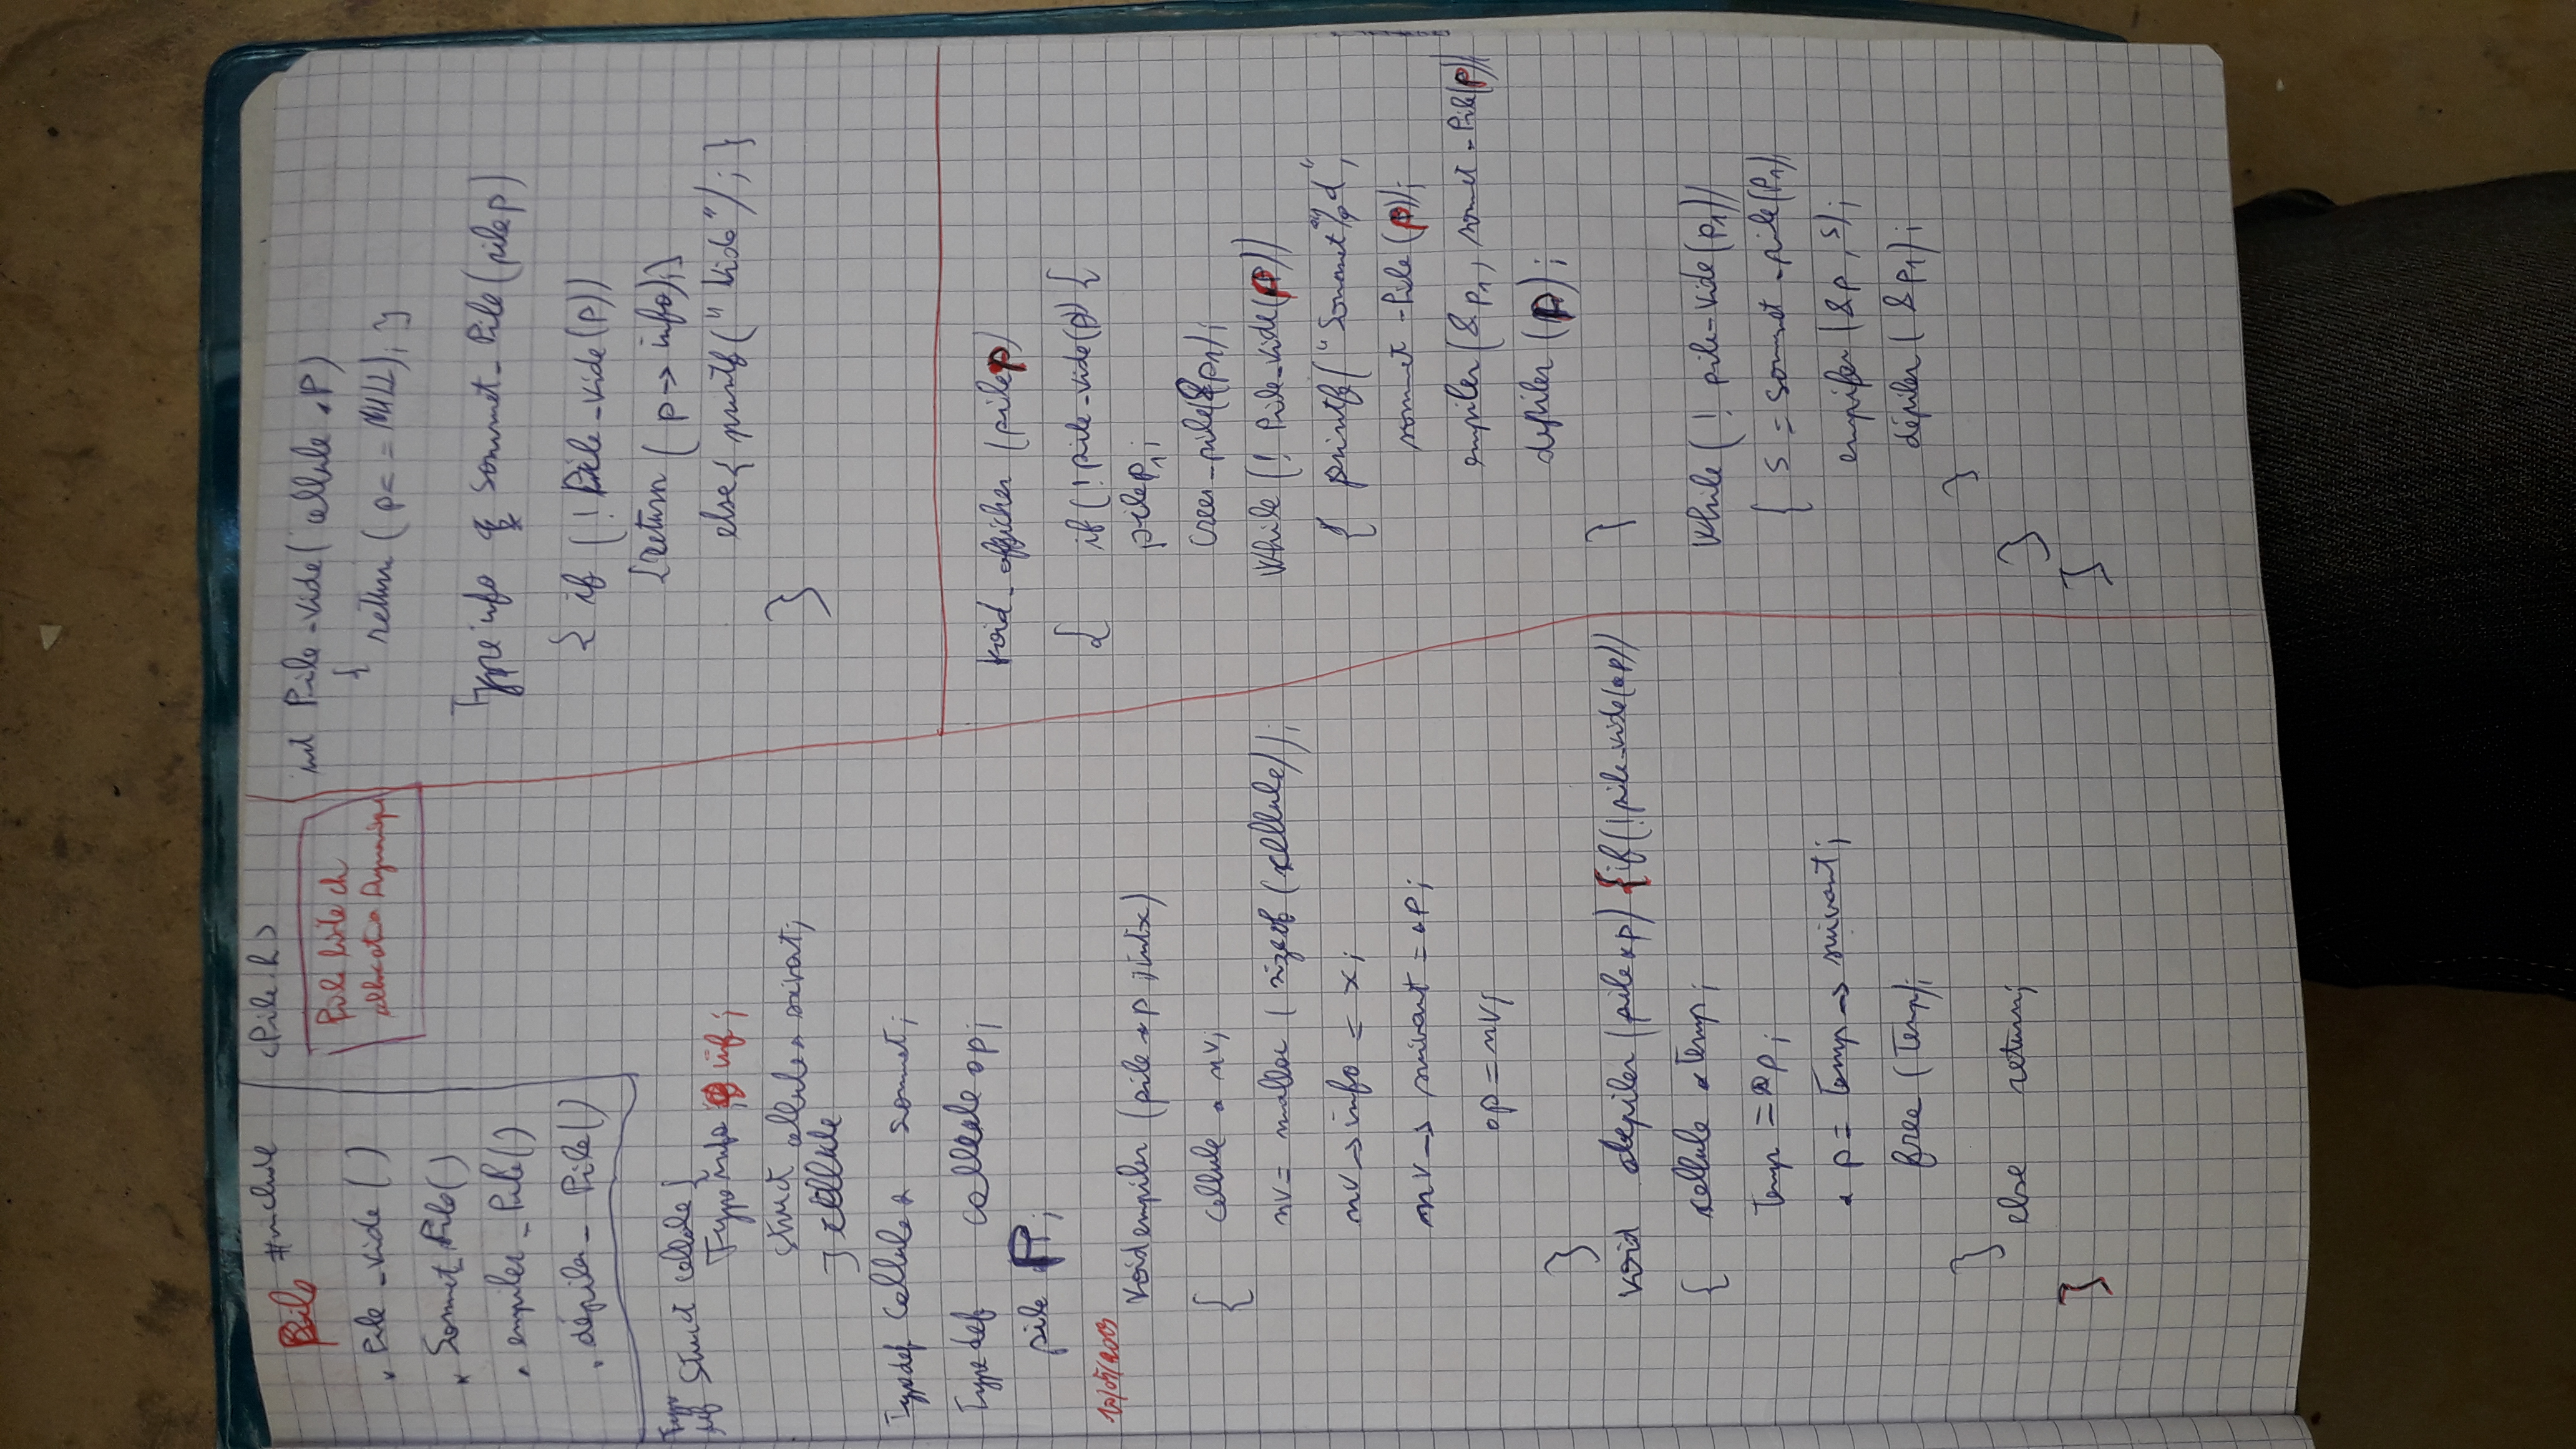 Pile #include <Pile.h>
* Pile_vide ()
* Sommet_Pile()
* empiler_Pile()
* dépiler_ Pile()
Pile liste ch
allocation Dynamique
Type
def Struct cellule {
Typeinfo inf;
struct cellule * suivant;
} cellule
Typedef Cellule * sommet;
Typedef cellule *p;
pile P;
Void empiler (pile *p , int x)
{ cellule * nv;
nv = malloc ( sizeof (cellule));
nv -> info = x;
nv -> suivant = *p;
*p = nv;
}
void depiler (pile *p) { if (! pile_vide(*p))
{ cellule * temp;
Temp = *p;
* p = Temp -> suivant;
free (Temp);
}
else return;
}
int Pile_vide( cellule *P)
{ return ( p == NULL); }
Type info sommet_Pile (pile p)
{ if (! Pile_vide (p))
{return ( p -> info);}
else { printf (" Vide"); }
}
void_afficher (pile p)
{ if (! pile_vide(p)) {
pile p1;
Creer_pile(&p1);
While (! Pile_vide(p))
{ printf ("Sommet %d",
sommet_Pile (p));
empiler (& p1, sommet_Pile(p))
depiler (p);
}
While (! pile_vide (p1))
{ s = sommet_pile(P1)
empiler (&p , s);
dépiler ( &p1);
}
}
}